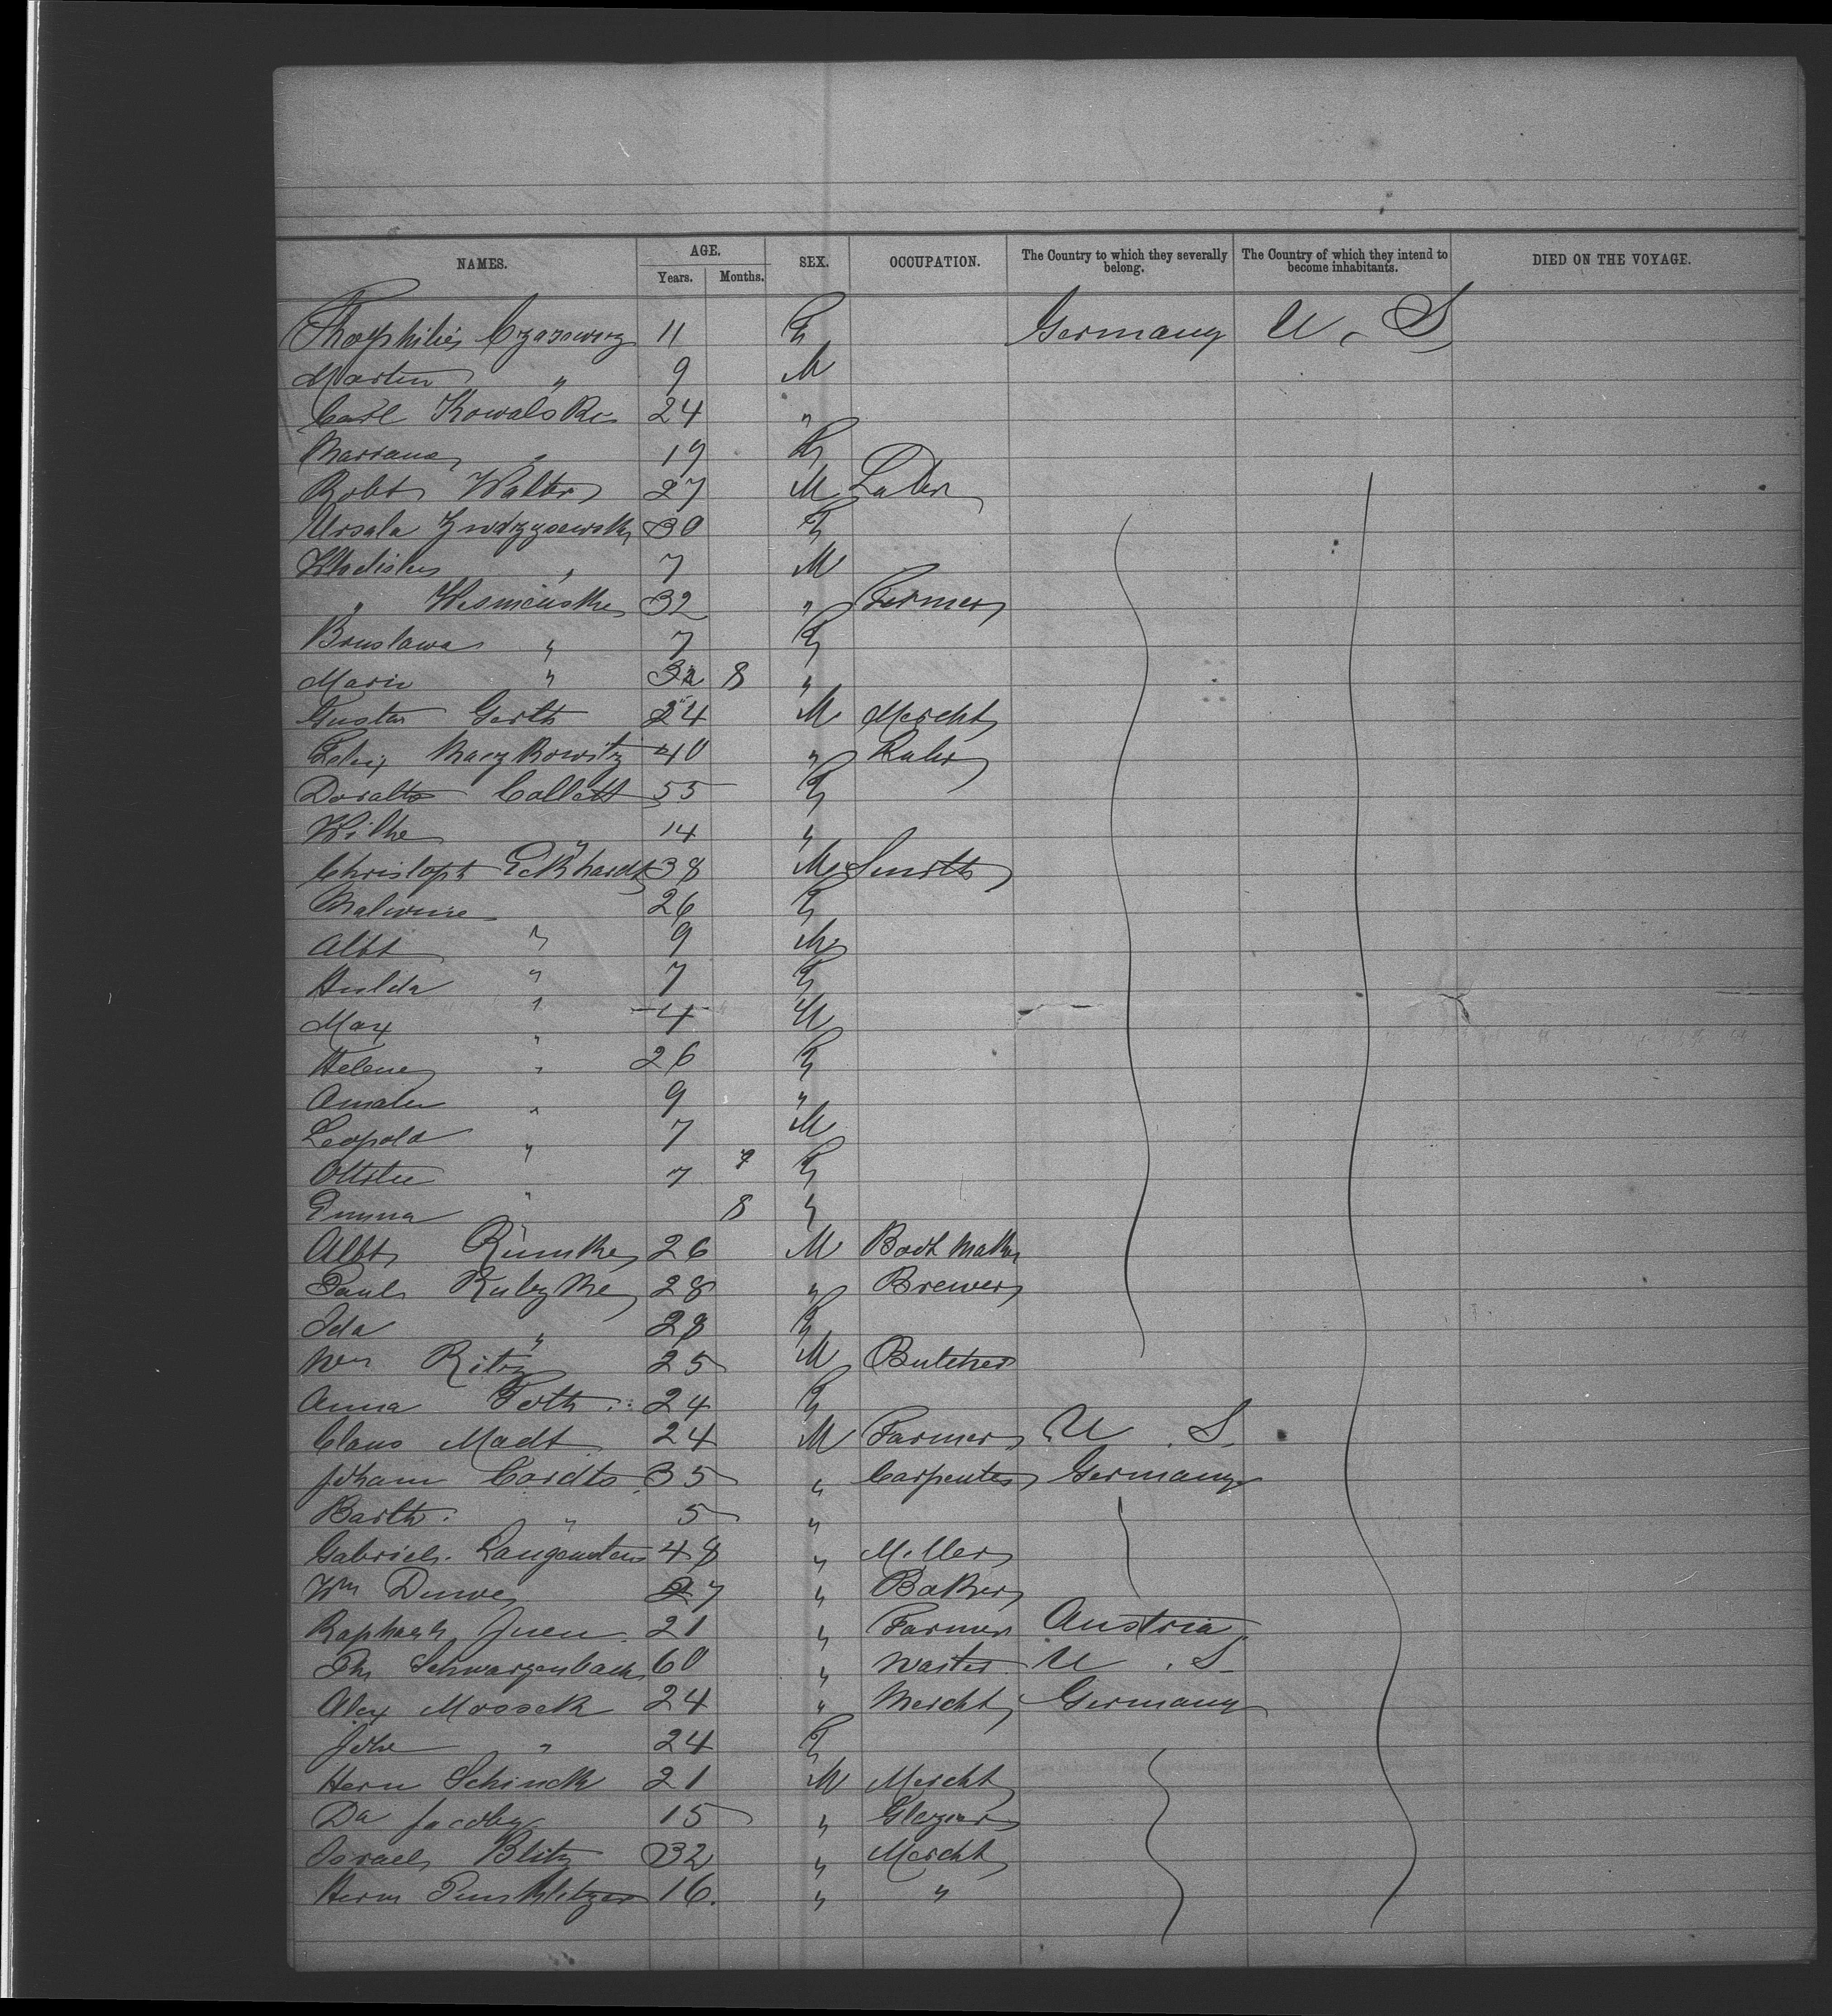 NAMES. AGE. Years. Months. SEX. OCCUPATION. The Country to which they severally belong. The Country of which they intend to become inhabitants. DIED ON THE VOYAGE.
11 F Germany U. S
Martin " 9 M
Carl Kowalski 24 "
Mariana " 19 F
Robt Walter 27 M Labr
Ursala 30 F
Wladislaus " 7 M
" Wisnienski 32 " Farmer
Bruslawa " 7 F
Marie " 32 8 "
Gustav Gerth 24 M Mercht
Felix 40 " Labr
Collatt 55 F
Wilhe " 14 "
Christoph Eckhardt 38 M Smith
Malwine " 26 F
Albt " 9 M
Hulda " 7 F
Max " 4 M
Helene " 26 F
Amalie " 9 "
Leopold " 7 M
Ottilie " 7 F
Emma " 8 "
Albt Rumke 26 M Boot Maker
Paul 28 " Brewer
Ida " 28 F
Wm Ritz 25 M Butcher
Anna 24 F
Claus Madt 24 M Farmer U. S.
Johann Cordts 35 " Carpenter Germany
Barth. " 5 "
Gabriel Langenstein 48 " Miller
Wm Duwe 27 " Baker
Raphael Juen 21 " Farmer Austria
Schwarzenbach 60 " Waiter U. S.
Alex Mossek 24 " Mercht Germany
Johe " 24 F
Herm Schinck 21 M Mercht
Da Jacoby 15 " Glazier
Israel Blitz 32 " Mercht
Herm 16. " "